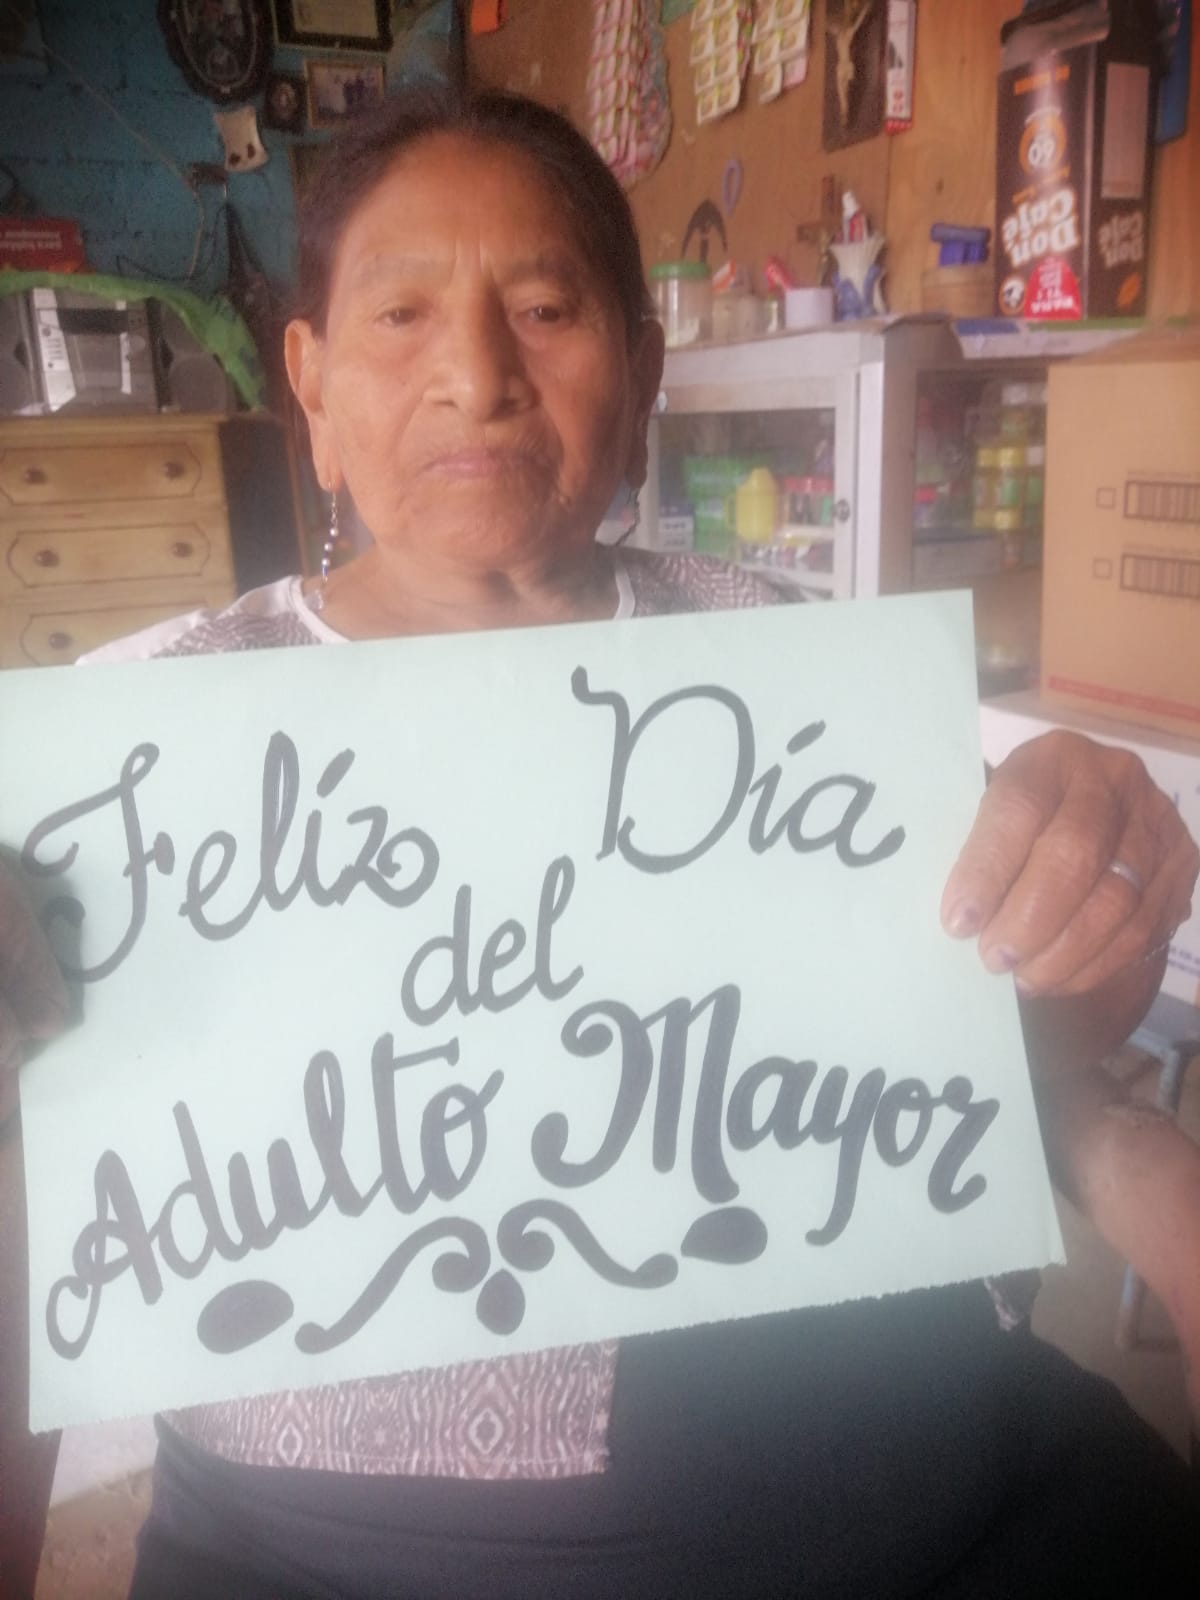 Felíz Día
del
Adulto Mayor
Don
Café